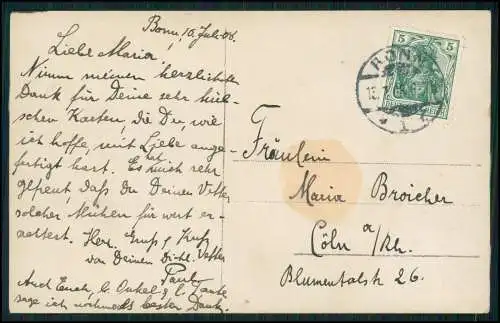 Bonn, 10. Juli 06.
Liebe Maria!
Nimm meinen herzlichsten
Dank für Deine sehr hüb-
schen Karten, die Du, wie
ich hoffe, mit Liebe ange-
fertigt hast. Es hat mich sehr
gefreut, daß du Deinen Vetter
solcher Mühen für wert er-
achtest. Herz. Gruß & Kuß
von Deinem Dich l. Vetter
Paul
Auch Euch, l. Onkel & l. Tante
sage ich nochmals besten Dank.
5 5
BONN
1
Fräulein
Maria Broicher
Cöln a/Rh.
Blumentalstr 26.